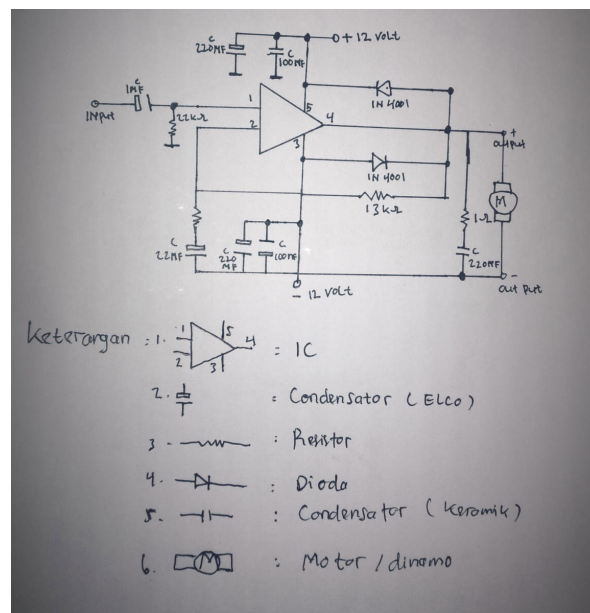 C
220MF
C
100MF
+ 12 Volt
C
1MF
INput
22kΩ
1
2
5
4
3
IN 4001
IN 4001
13kΩ
+
output
M
1Ω
C
220MF
C
22MF
C
220
MF
C
100MF
- 12 Volt
-
out put
Keterangan : 1.
1
2
5
3
4
= IC
2. : Condensator (ELCO)
3 - : Resistor
4. : Dioda
5. : Condensator (Keramik)
6. M : Motor / dinamo